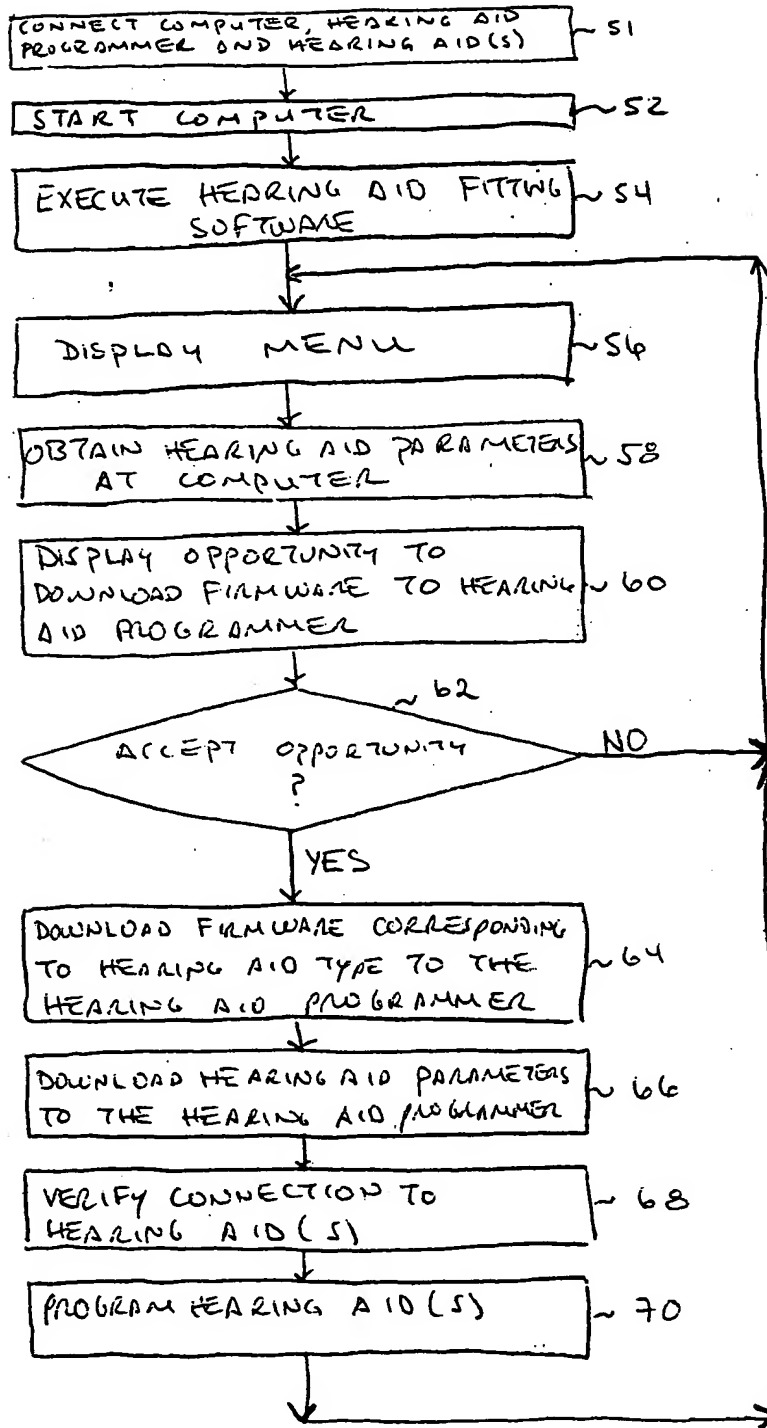 CONNECT COMPUTER, HEARING AID
PROGRAMMER AND HEARING AID(S)
~ 51
START COMPUTER
~ 52
EXECUTE HEARING AID FITTING
SOFTWARE
~ 54
DISPLAY MENU
~ 56
OBTAIN HEARING AID PARAMETERS
AT COMPUTER
~ 58
DISPLAY OPPORTUNITY TO
DOWNLOAD FIRMWARE TO HEARING
AID PROGRAMMER
~ 60
~ 62
ACCEPT OPPORTUNITY
?
NO
YES
DOWNLOAD FIRMWARE CORRESPONDING
TO HEARING AID TYPE TO THE
HEARING AID PROGRAMMER
~ 64
DOWNLOAD HEARING AID PARAMETERS
TO THE HEARING AID PROGRAMMER
~ 66
VERIFY CONNECTION TO
HEARING AID(S)
~ 68
PROGRAM HEARING AID(S)
~ 70